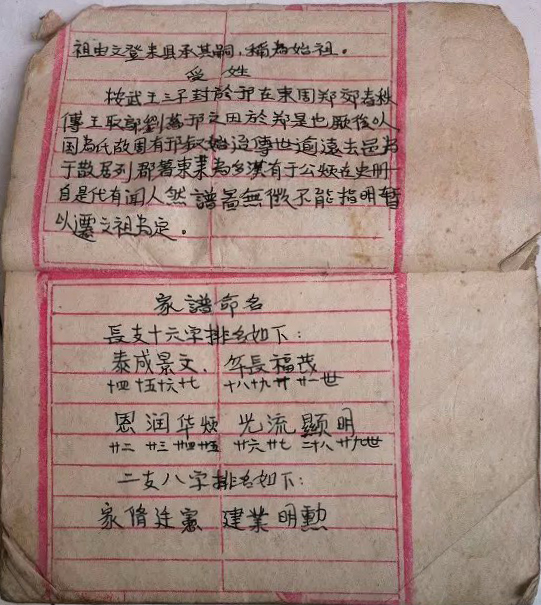 祖由文登来具承其嗣，稱為始祖。
受姓
按武王三子封於邘在東周郑郊春秋
傳王取鄔劉蒍邘之田於郑是也厥後以
国為氏故周有邘叔始迨傳世逾遠去邑为
于散居列郡著東莱為多漢有于公烦在史册
自是代有闻人然譜畾無徴不能指明暫
以遷文祖为定。
家譜命名
長支十六字排名如下：
泰成景文．年長福茂
十四 十五 十六 十七 十八 十九 廿 廿一世
恩润华焕 光流顯明
廿二 廿三 廿四 廿五 廿六 廿七 二十八 廿九世
二支八字排名如下：
家脩廷憲 建業明勲